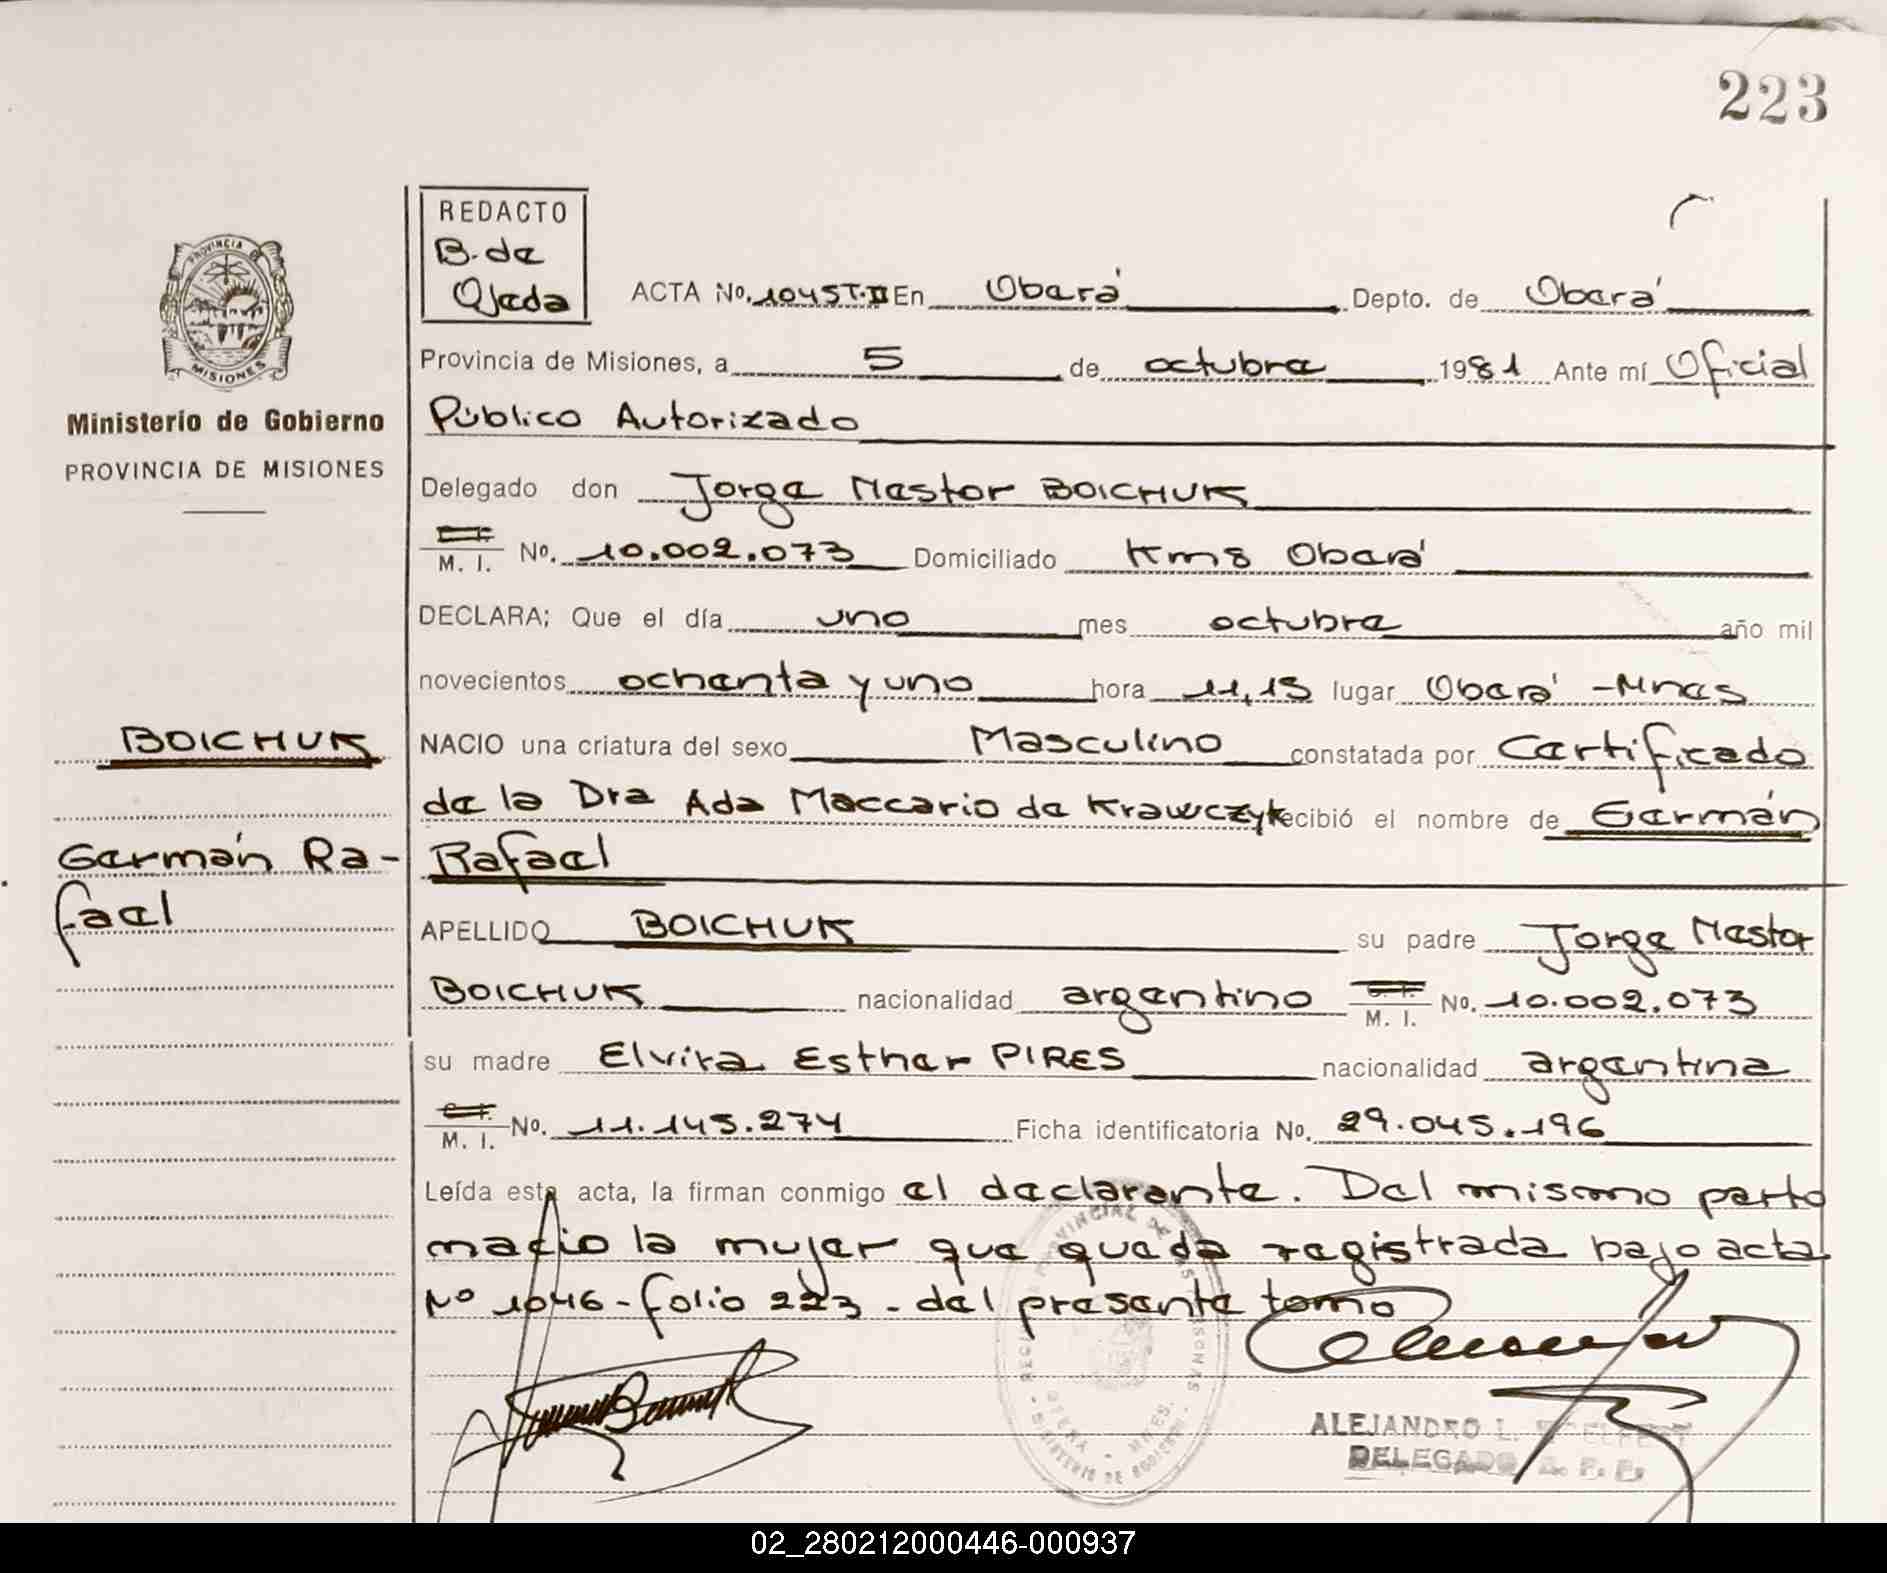 223
REDACTO
B. de
Ojeda
ACTA No. 1045 T. II En Oberá Depto. de Oberá
PROVINCIA DE
MISIONES
Provincia de Misiones, a 5 de octubre 1981 Ante mí Oficial
Ministerio de Gobierno
Público Autorizado
PROVINCIA DE MISIONES
Delegado don Jorge Nestor BOICHUK
C. I.
M. I. No. 10.002.073 Domiciliado Km 8 Oberá
DECLARA; Que el día uno mes octubre año mil
novecientos ochenta y uno hora 11,15 lugar Oberá - Mnes
BOICHUK
NACIO una criatura del sexo Masculino constatada por Certificado
de la Dra Ada Maccario de Krawczyk recibió el nombre de Germán
Germán Ra-
fael
Rafael
APELLIDO BOICHUK su padre Jorge Nestor
BOICHUK nacionalidad argentino C. I. M. I. No. 10.002.073
su madre Elvira Esther PIRES nacionalidad argentina
C. I.
M. I. No. 11.145.274 Ficha identificatoria No. 29.045.196
Leída esta acta, la firman conmigo el declarante. Del mismo parto
nacio la mujer que queda registrada bajo acta
Nº 1046 - folio 223 - del presente tomo
ALEJANDRO L.
DELEGADO R. P. P.
02_280212000446-000937